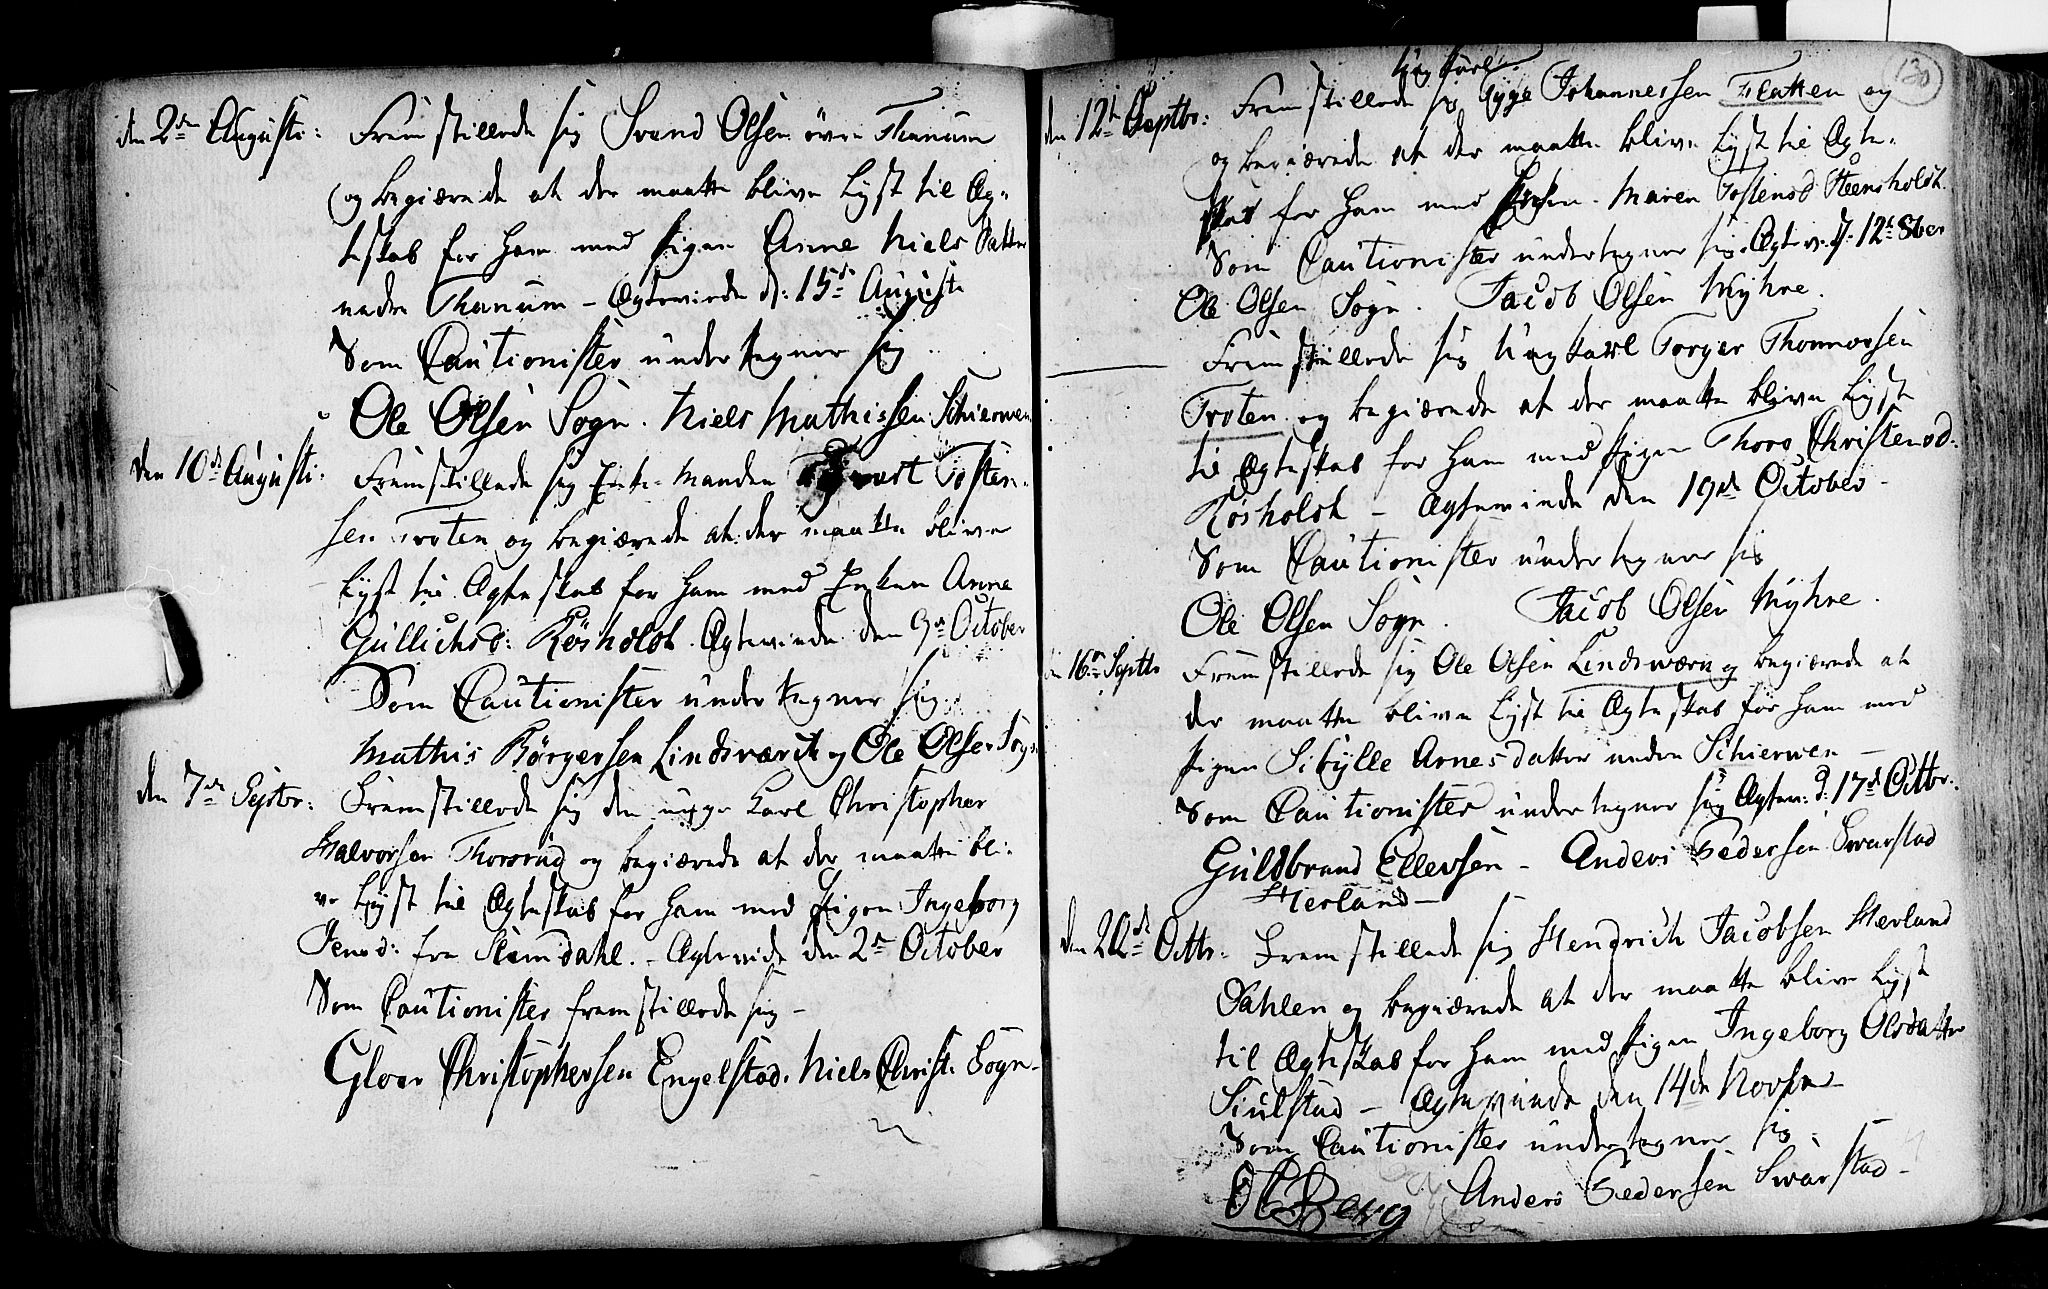 den 2den Augusti: Fremstillede sig Svend Olsen övre Thanum
og begiærede at der maatte blive Lyst til Æg-
teskab for ham med Pigen Anne Niels Datter
nedre Thanum - Ægteviede d: 15de Augusti
Som Cautionister undertegner sig
Ole Olsen Sogn. Niels Mathissen Schierwen
den 10de Augusti: Fremstillede sig Enke-Manden Tosten-
sen Troten og begiærede at der maatte blive
Lyst til Ægteskab for ham med Enken Anne
Gullichsd: Røsholdt Ægteviede den 9de October
Som Cautionister undertegner sig
Mathis Børgersen Lindsværck og Ole Olsen Sogn
den 7de Septbr: Fremstillede sig den unge Karl Christopher
Halvorsen Thorsrud og begiærede at der maatte bli-
ve Lyst til Ægteskab for ham med Pigen Ingeborg
Jensd: fra Slemdahl. - Ægteviede den 2de October
Som Cautionister fremstillede sig -
Gloer Christophersen Engelstad. Niels Christ: Sogn -
130
Ung Karl
den 12te Septbr: Fremstillede sig Johannessen Flatten og
og begiærede at der maatte blive Lyst til Ægte-
skab for ham med Maren Tostensd Steensholdt.
Som Cautionister undertegner sig. Ægtev. d. 12te 8ber
Ole Olsen Sogn. Jacob Olsen Myhre.
Fremstillede sig Ungkarl Torger Thommesen
Troten og begiærede at der maatte blive Lyst
til Ægteskab for ham med Pigen Thore Christensd:
Røsholdt - Ægteviede den 19de October -
Som Cautionister undertegner sig
Ole Olsen Sogn. Jacob Olsen Myhre.
16de Septbr Fremstillede sig Ole Olsen Lindsværn og begiærede at
der maatte blive Lyst til Ægteskab for ham med
Pigen Sibylle Arnesdatter nedre Schierwen -
Som Cautionister undertegner sig Ægtev: d: 17de Octbr:
Guldbrand Ellevsen - Anders Pedersen Swarstad
Herland -
den 22de Octbr: Fremstillede sig Hendrich Jacobsen Herland
Dahlen og begiærede at der maatte blive Lyst
til Ægteskab for ham med Pigen Ingeborg Olsdatter
Siulstad - Ægteviede den 14de Novbr -
Som Cautionister undertegner sig
Berg Anders Pedersen Swarstad -